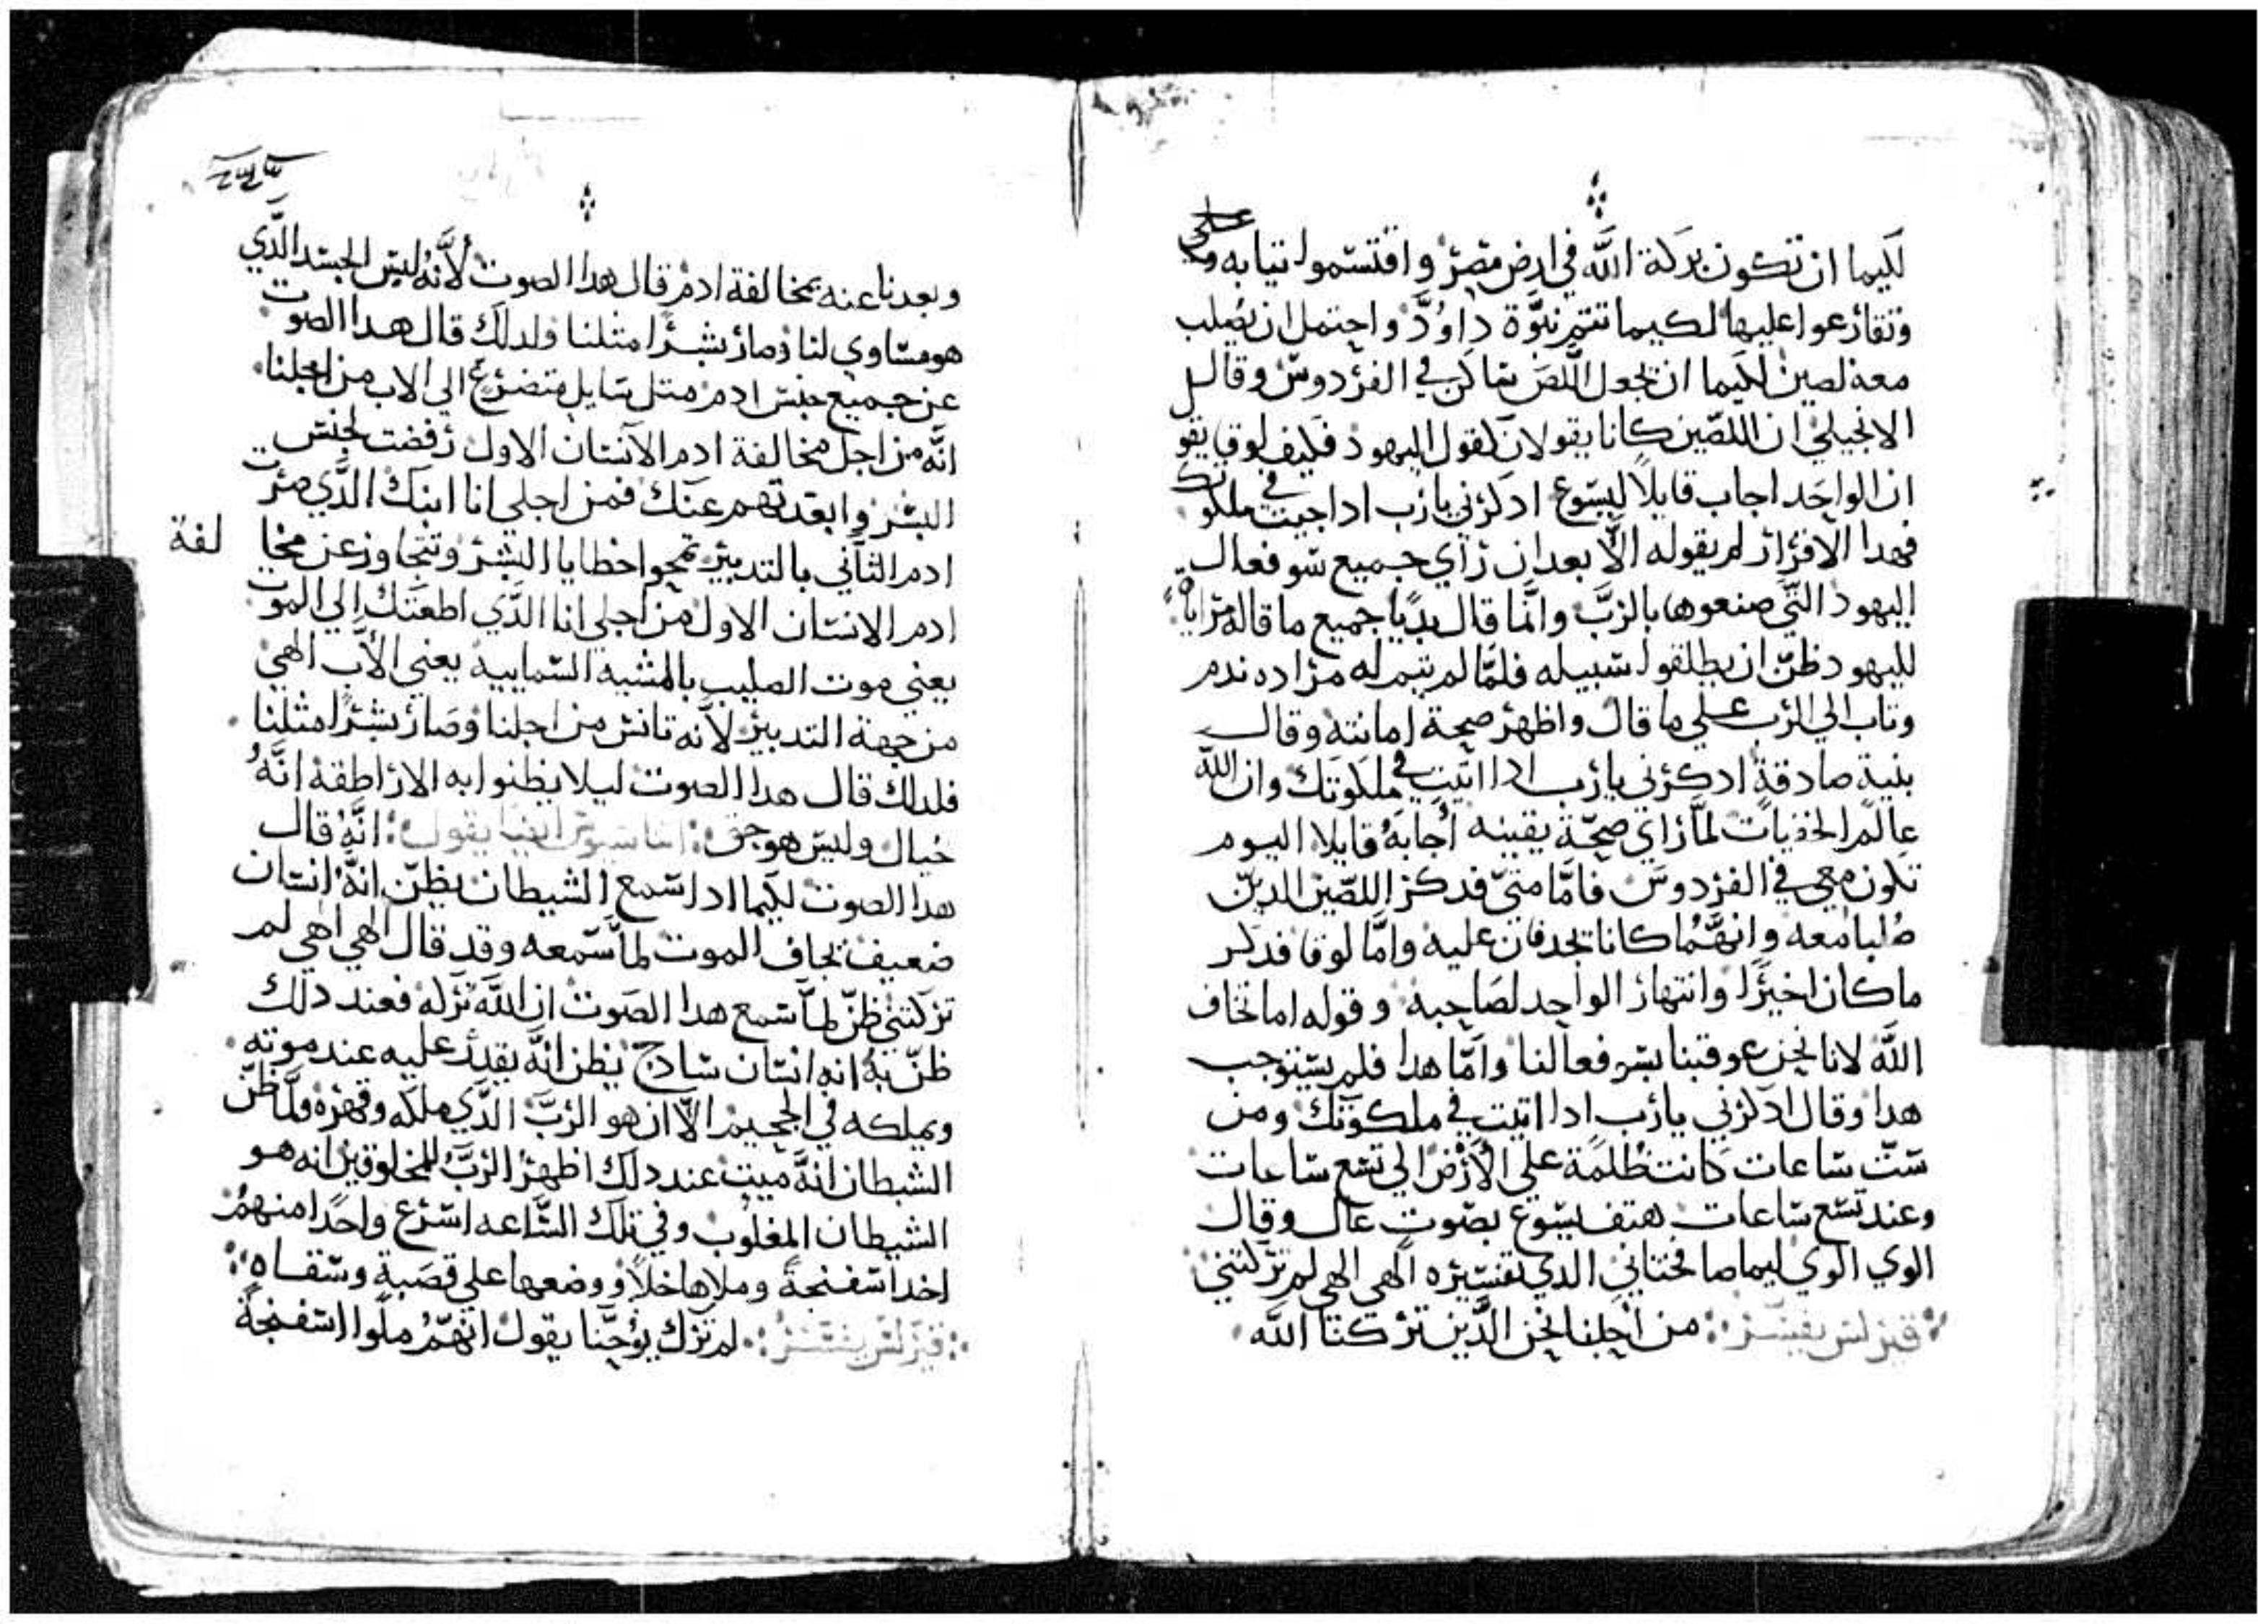 لكيما ان تكون بركة الله في ارض مصر واقتسموا تيابه على
وتقارعوا عليها لكيما تتم نبوة داوود واحتمل ان يصلب
معه لصين لكيما ان يجعل اللص ساكن في الفردوس وقال
الانجيلي ان اللصين كانا يقولان كقول اليهود فكيف لوقا يقو
ان الواحد اجاب قايلا ليسوع ادكرني يارب ادا جيت في ملكوتك
فهدا الاقرار لم يقوله الا بعد ان راي جميع سو فعال
اليهود التي صنعوها بالرب وانما قال بديا جميع ما قاله
لليهود ظن ان يطلقوا سبيله فلما لم يتم له مراده ندم
وتاب الي الرب علي ما قال واظهر صحة امانته وقال
بنية صادقة ادكرني يارب ادا اتيت في ملكوتك وان الله
عالم الخفيات لما راي صحة يقينه اجابه قايلا اليوم
تكون معي في الفردوس فاما متي فدكر اللصين الدين
صلبا معه وانهما كانا يجدفان عليه واما لوقا فدكر
ما كان اخيرا وانتهار الواحد لصاحبه وقوله اما تخاف
الله لانا نحن عوقبنا بسو فعالنا واما هدا فلم يستوجب
هدا وقال ادكرني يارب ادا اتيت في ملكوتك ومن
ست ساعات كانت ظلمة علي الارض الي تسع ساعات
وعند تسع ساعات هتف يسوع بصوت عال وقال
الوي الوي ليما صافختاني الدي تفسيره الهي الهي لم تركتني
قيرلس يفسر من اجلنا نحن الدين تركنا الله
وبعدنا عنه بمخالفة ادم قال هدا الصوت لانه لبس الجسد الدي
هو مساوي لنا وصار بشرا مثلنا ولدلك قال هدا الصوت
عن جميع جنس ادم متل سايل متضرع الي الاب من اجلنا
انه من اجل مخالفة ادم الانسان الاول رفضت لجنس
البشر وابعدتهم عنك فمن اجلي انا ابنك الدي صرت
ادم التاني بالتدبير تمحوا خطايا البشر وتتجاوز عن مخا لفة
ادم الانسان الاول من اجلي انا الدي اطعتك الي الموت
يعني موت الصليب بالمشيه السماييه يعني الاب الهي
من جهة التدبير لانه تانس من اجلنا وصار بشرا مثلنا
فلدلك قال هدا الصوت ليلا يظنوا به الاراطقة انه
خيال وليس هو حق ايضا يقول انه قال
هدا الصوت لكيما ادا سمع الشيطان يظن انه انسان
ضعيف يخاف الموت لما سمعه وقد قال الهي الهي لم
تركتني ظن لما سمع هدا الصوت ان الله تركه فعند دلك
ظن به انه انسان سادج يظن انه يقدر عليه عند موته
ويملكه في الجحيم الا ان هو الرب الدي ملكه وقهره ولما ظن
الشيطان انه ميت عند دلك اظهر الرب للمخلوقين انه هو
الشيطان المغلوب وفي تلك الساعه اسرع واحدا منهم
اخد اسفنجة وملاها خلا ووضعها علي قصبة وسقاه
قيرلس يفسر لم ترك يوحنا يقول انهم ملوا اسفنجة